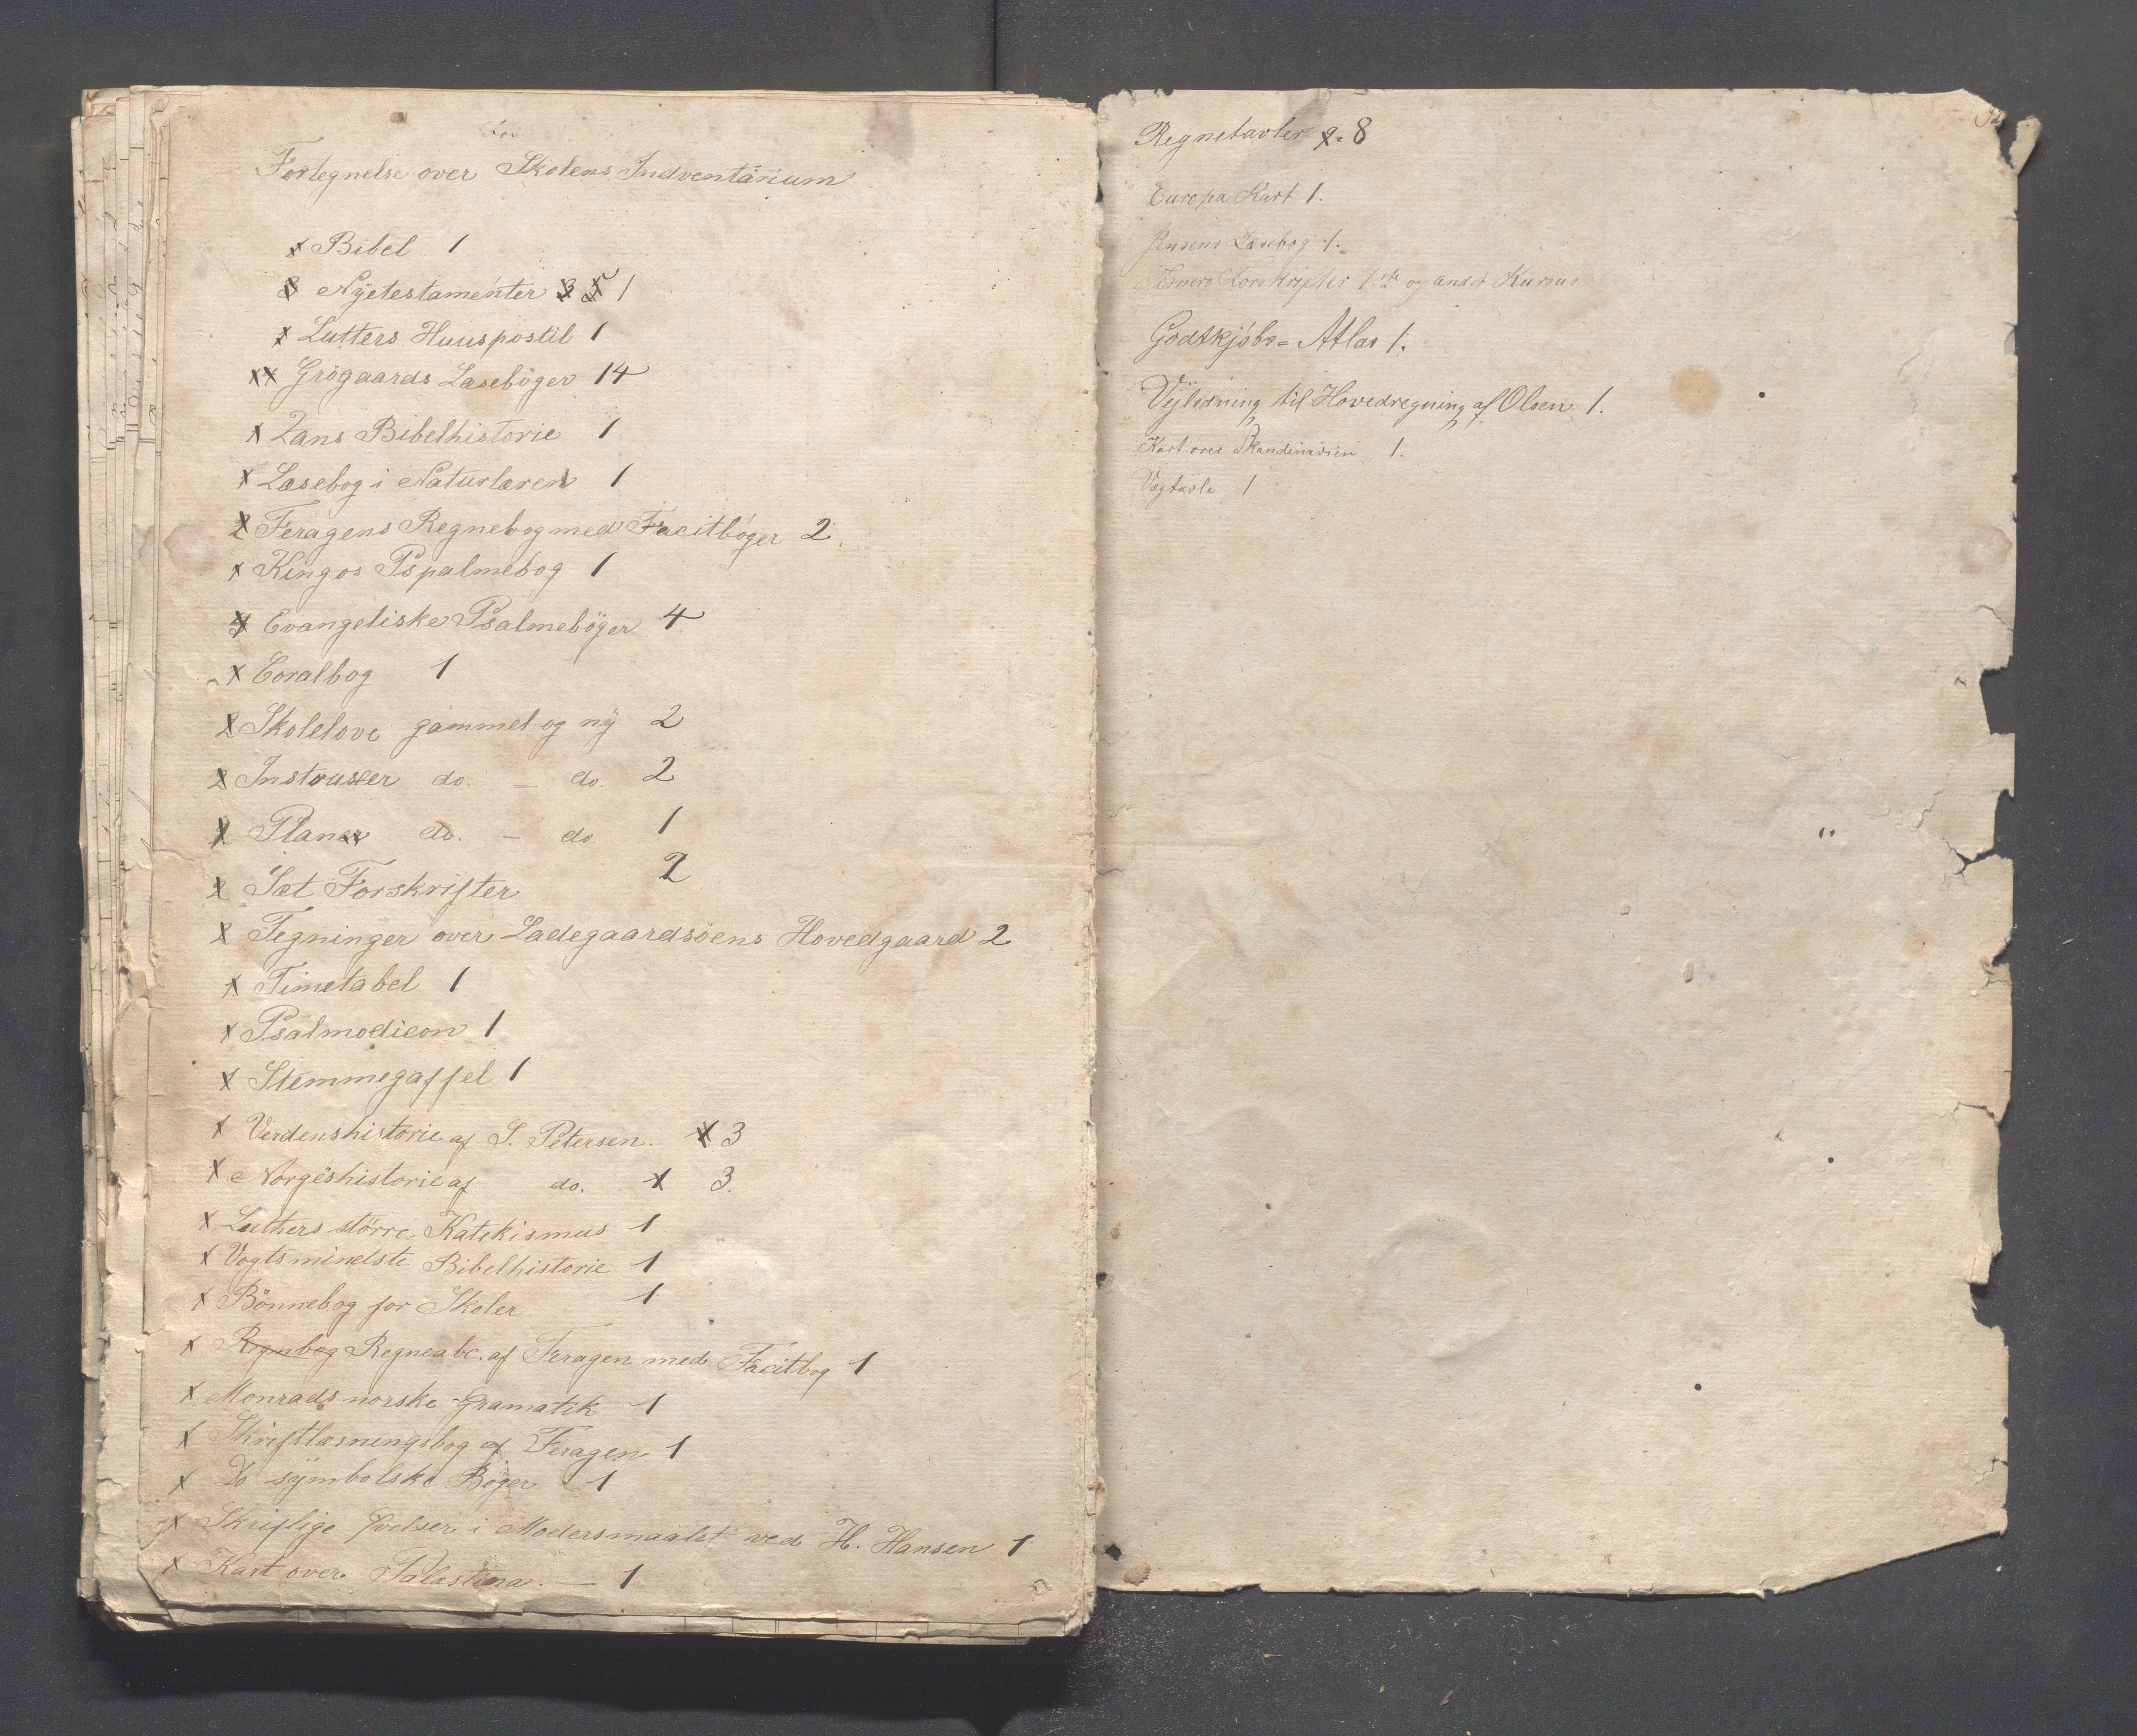 Fortegnelse over Skolens Indventarium
Bibel 1
Nÿetestamenter 1
Lutters Huuspostil 1
Grögaards Lasebøger 14
Zans Bibelhistorie 1
Læsebog i Naturlæren 1
Feragens Regnebog med Facitbøger 2
Kingos Pspalmebog 1
Evangeliske Psalmebøger 4
Coralbog 1
Skolelove gammel og nÿ 2
Instruxer do. — do. 2
Planer do. — do. 1
Sæt Forskrifter 2
Tegninger over Ladegaardsøens Hovedgaard 2
Timetabel 1
Psalmodicon 1
Stemmegaffel 1
Verdenshistorie af S. Petersen. 3
Norgeshistorie af do. 3.
Luthers större Katekismus 1
Vogts mindste Bibelhistorie 1
Bönnebog for Skoler 1
Regnbog Regneabc. af Feragen med Facitbog 1
Monrads norske Gramatik 1
Skriftlæsningsbog af Feragen 1
Do sÿmbolske Bøger 1
Skriflige Øvelser i Modersmaalet ved H. Hansen 1
Kart over Palæstina. — 1
Regnetavler 8
Europa Kart 1.
Jensens Læsebog 1.
Forskrifter 1ste og andet Kursus
Godtkjøbs= Atlas 1.
Vejledning til Hovedregning af Olsen 1.
Kart over Skandinavien 1.
Vægtavle 1